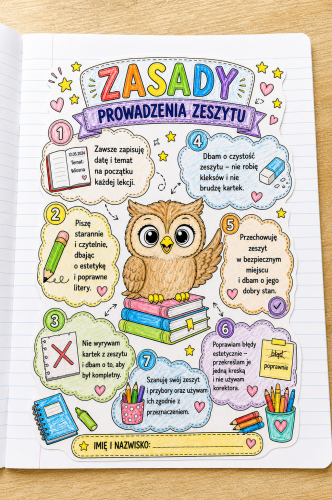 ZASADY
PROWADZENIA ZESZYTU
1
12.05.2024
Temat:
Wiosna
Zawsze zapisuję
datę i temat
na początku
każdej lekcji.
4
Dbam o czystość
zeszytu – nie robię
kleksów i nie
brudzę kartek.
2
Piszę
starannie
i czytelnie,
dbając
o estetykę
i poprawne
litery.
5
Przechowuję
zeszyt
w bezpiecznym
miejscu
i dbam o jego
dobry stan.
3
Nie wyrywam
kartek z zeszytu
i dbam o to, aby
był kompletny.
6
Poprawiam błędy
estetycznie –
przekreślam je
jedną kreską
i nie używam
korektora.
błąd
poprawnie
7
Szanuję swój zeszyt
i przybory oraz używam
ich zgodnie z
przeznaczeniem.
IMIĘ I NAZWISKO: